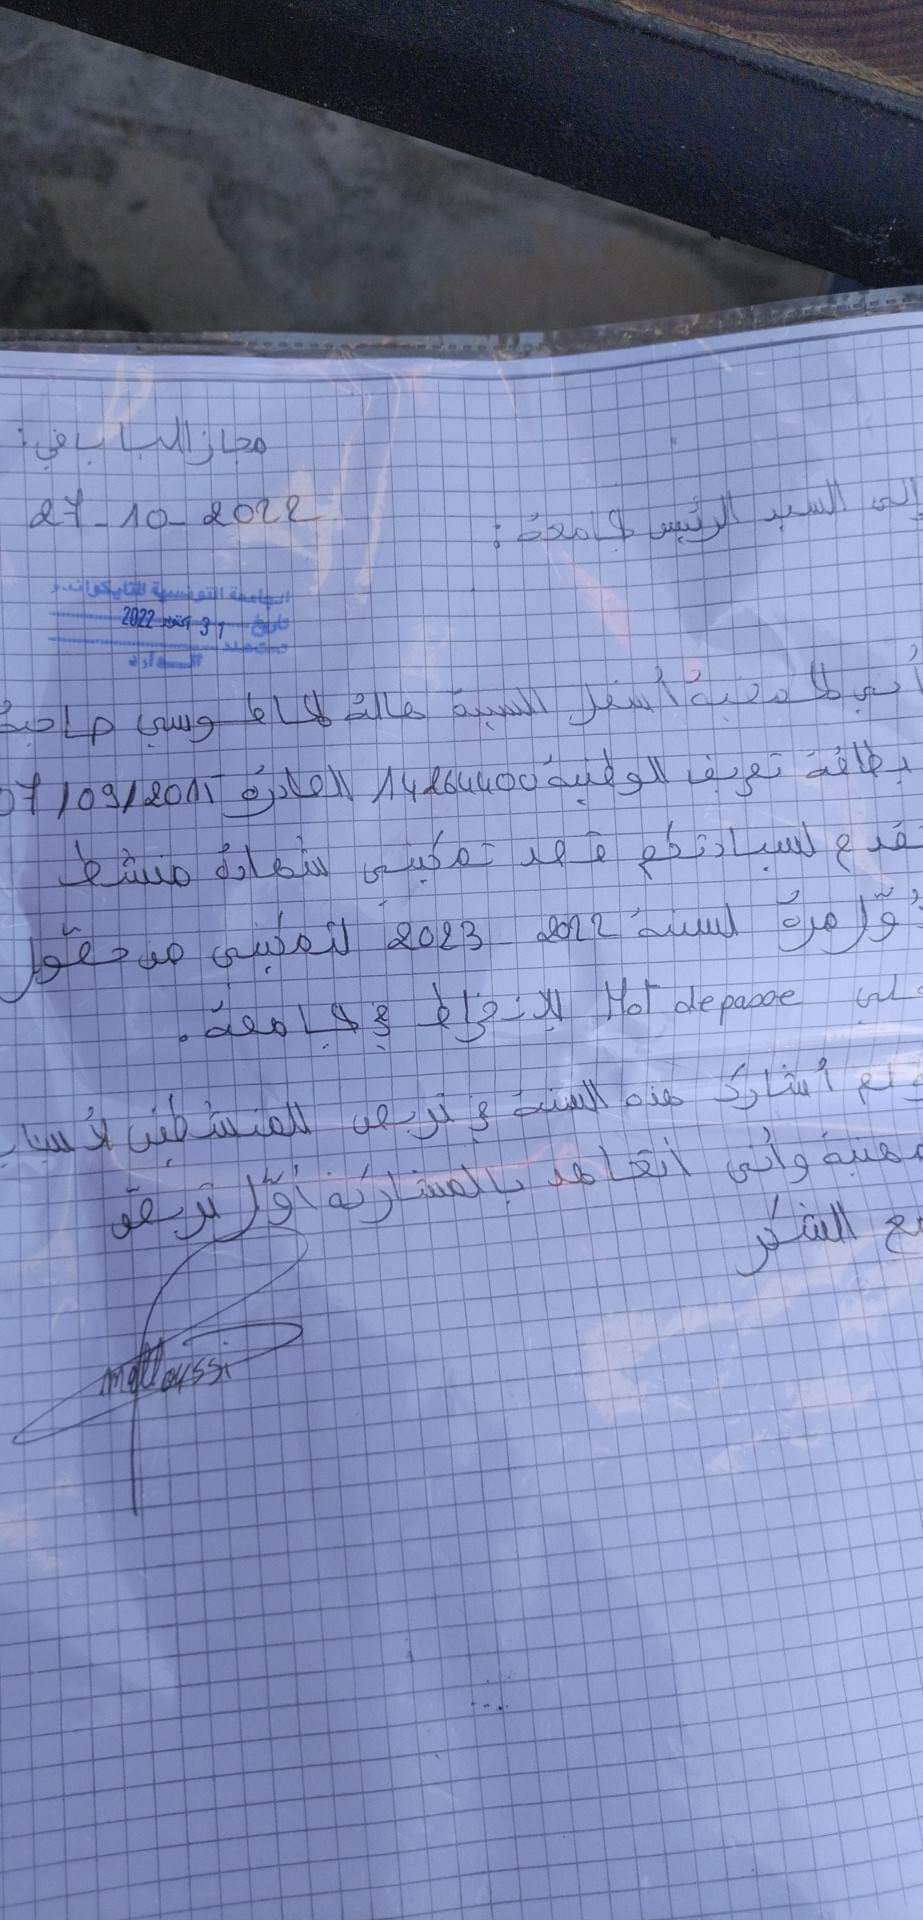 مجاز الباب في:
27-10-2022
إلى السيد الرئيس الجامعة:
الجامعة التونسية للتايكواندو
تاريخ 31 أكتوبر 2022
إني الممضية أسفل السيدة هالة الماطوسي صاحبة
بطاقة تعريف الوطنية 14264400 الصادرة 07/09/2015
لسيادتكم قصد تمكيني شهادة منشط
أوّل مرة لسنة 2022-2023 لتمكيني من حصول
على Mot de passe الإنخراط في الجامعة.
ولم أشارك هذه السنة في تربص المنشطين لأسباب
مهنية وأني أتعاهد بالمشاركة أوّل تربص
مع الشكر
matloussi